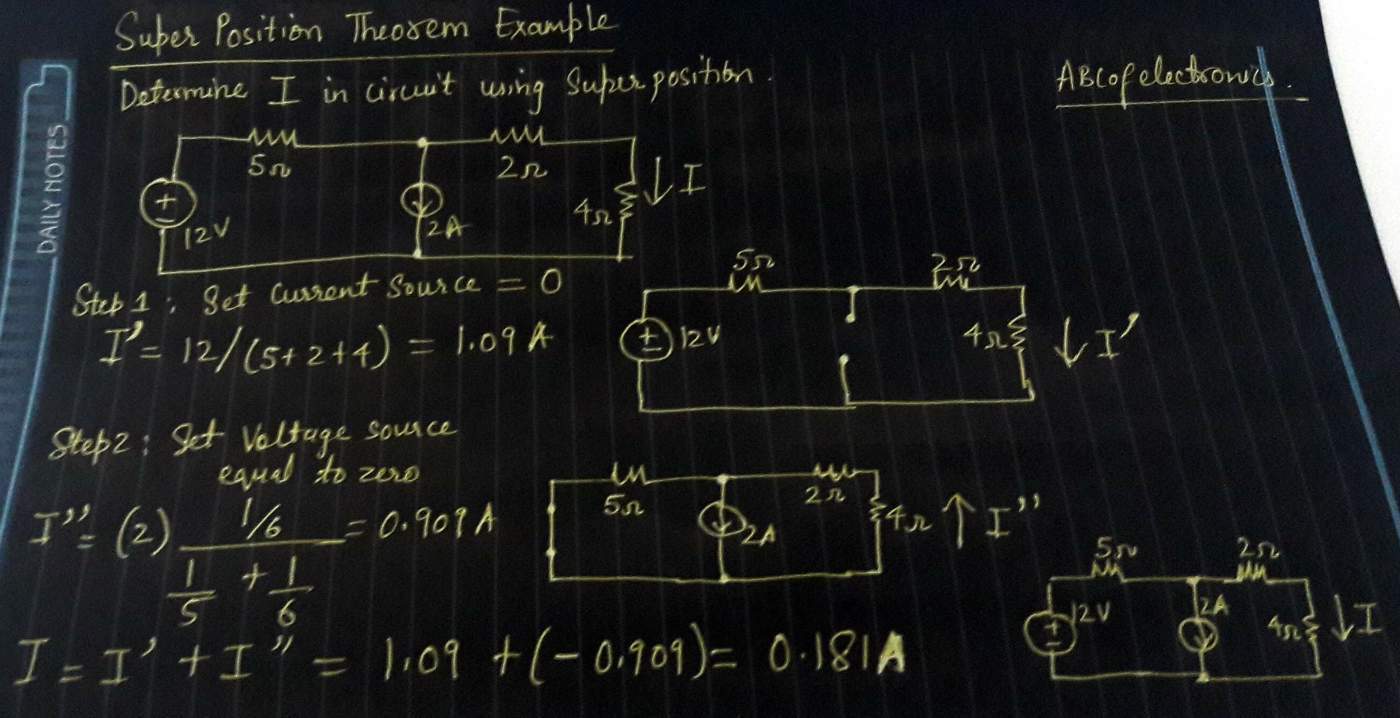 Super Position Theorem Example
Determine I in circuit using Superposition.
ABCofelectronics.
DAILY NOTES
5Ω 2Ω
12V 2A 4Ω ↓ I
Step 1: Set Current Source = 0
I' = 12/(5+2+4) = 1.09 A
5Ω 2Ω
12V 4Ω ↓ I'
Step2: Set Voltage source
equal to zero
I'' = (2) (1/6) / (1/5 + 1/6) = 0.909 A
5Ω 2Ω
2A 4Ω ↑ I''
5Ω 2Ω
12V 2A 4Ω ↓ I
I = I' + I'' = 1.09 + (-0.909) = 0.181A